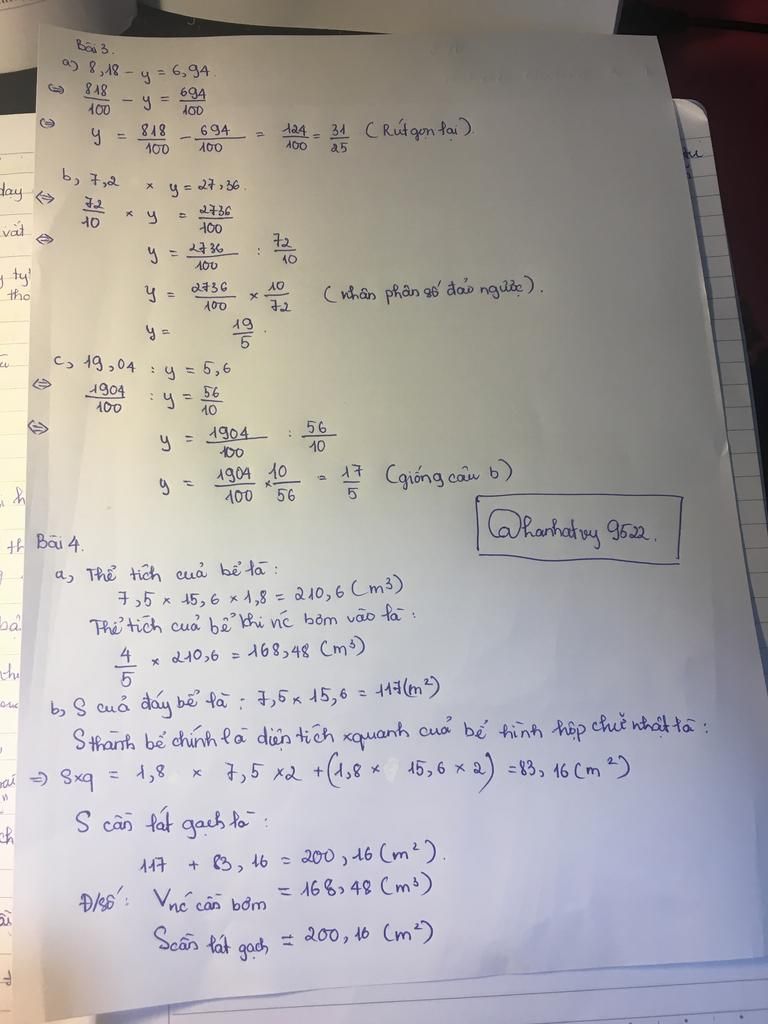 Bài 3.
a) 8,18 - y = 6,94.
⇔ 818/100 - y = 694/100
⇔ y = 818/100 - 694/100 = 124/100 = 31/25 (Rút gọn lại).
b, 7,2 × y = 27,36.
⇔ 72/10 × y = 2736/100
⇔ y = 2736/100 : 72/10
y = 2736/100 × 10/72 (nhân phân số đảo ngược).
y = 19/5.
c, 19,04 : y = 5,6
⇔ 1904/100 : y = 56/10
⇔ y = 1904/100 : 56/10
y = 1904/100 × 10/56 = 17/5 (giống câu b)
@hanhatvy 9522.
Bài 4.
a, Thể tích cuả bể là:
7,5 × 15,6 × 1,8 = 210,6 (m³)
Thể tích cuả bể khi nc bơm vào là:
4/5 × 210,6 = 168,48 (m³)
b, S cuả đáy bể là: 7,5 × 15,6 = 117 (m²)
S thành bể chính là diện tích xquanh cuả bể hình hộp chữ nhật là:
⇒ Sxq = 1,8 × 7,5 × 2 + (1,8 × 15,6 × 2) = 83,16 (m²)
S cần lát gạch là:
117 + 83,16 = 200,16 (m²).
Đ/số: Vnc cần bơm = 168,48 (m³)
Scần lát gạch = 200,16 (m²)